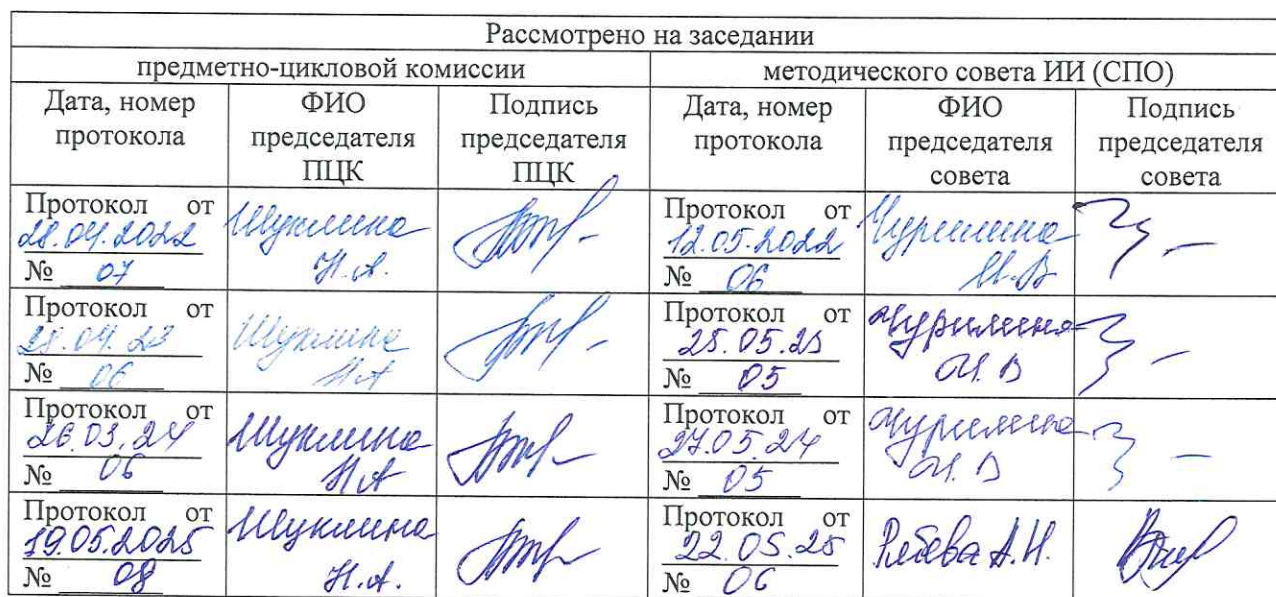 Рассмотрено на заседании
предметно-цикловой комиссии методического совета ИИ (СПО)
Дата, номер протокола ФИО председателя ПЦК Подпись председателя ПЦК Дата, номер протокола ФИО председателя совета Подпись председателя совета
Протокол от 28.04.2022 № 07 Шуклина Н.А. Протокол от 12.05.2022 № 06 Чурилина И.В
Протокол от 28.04.23 № 06 Шуклина НА Протокол от 25.05.23 № 05 Чурилина И.В
Протокол от 26.03.24 № 06 Шуклина НА Протокол от 27.05.24 № 05 Чурилина И.В
Протокол от 19.05.2025 № 08 Шуклина Н.А. Протокол от 22.05.25 № 06 А.Н.